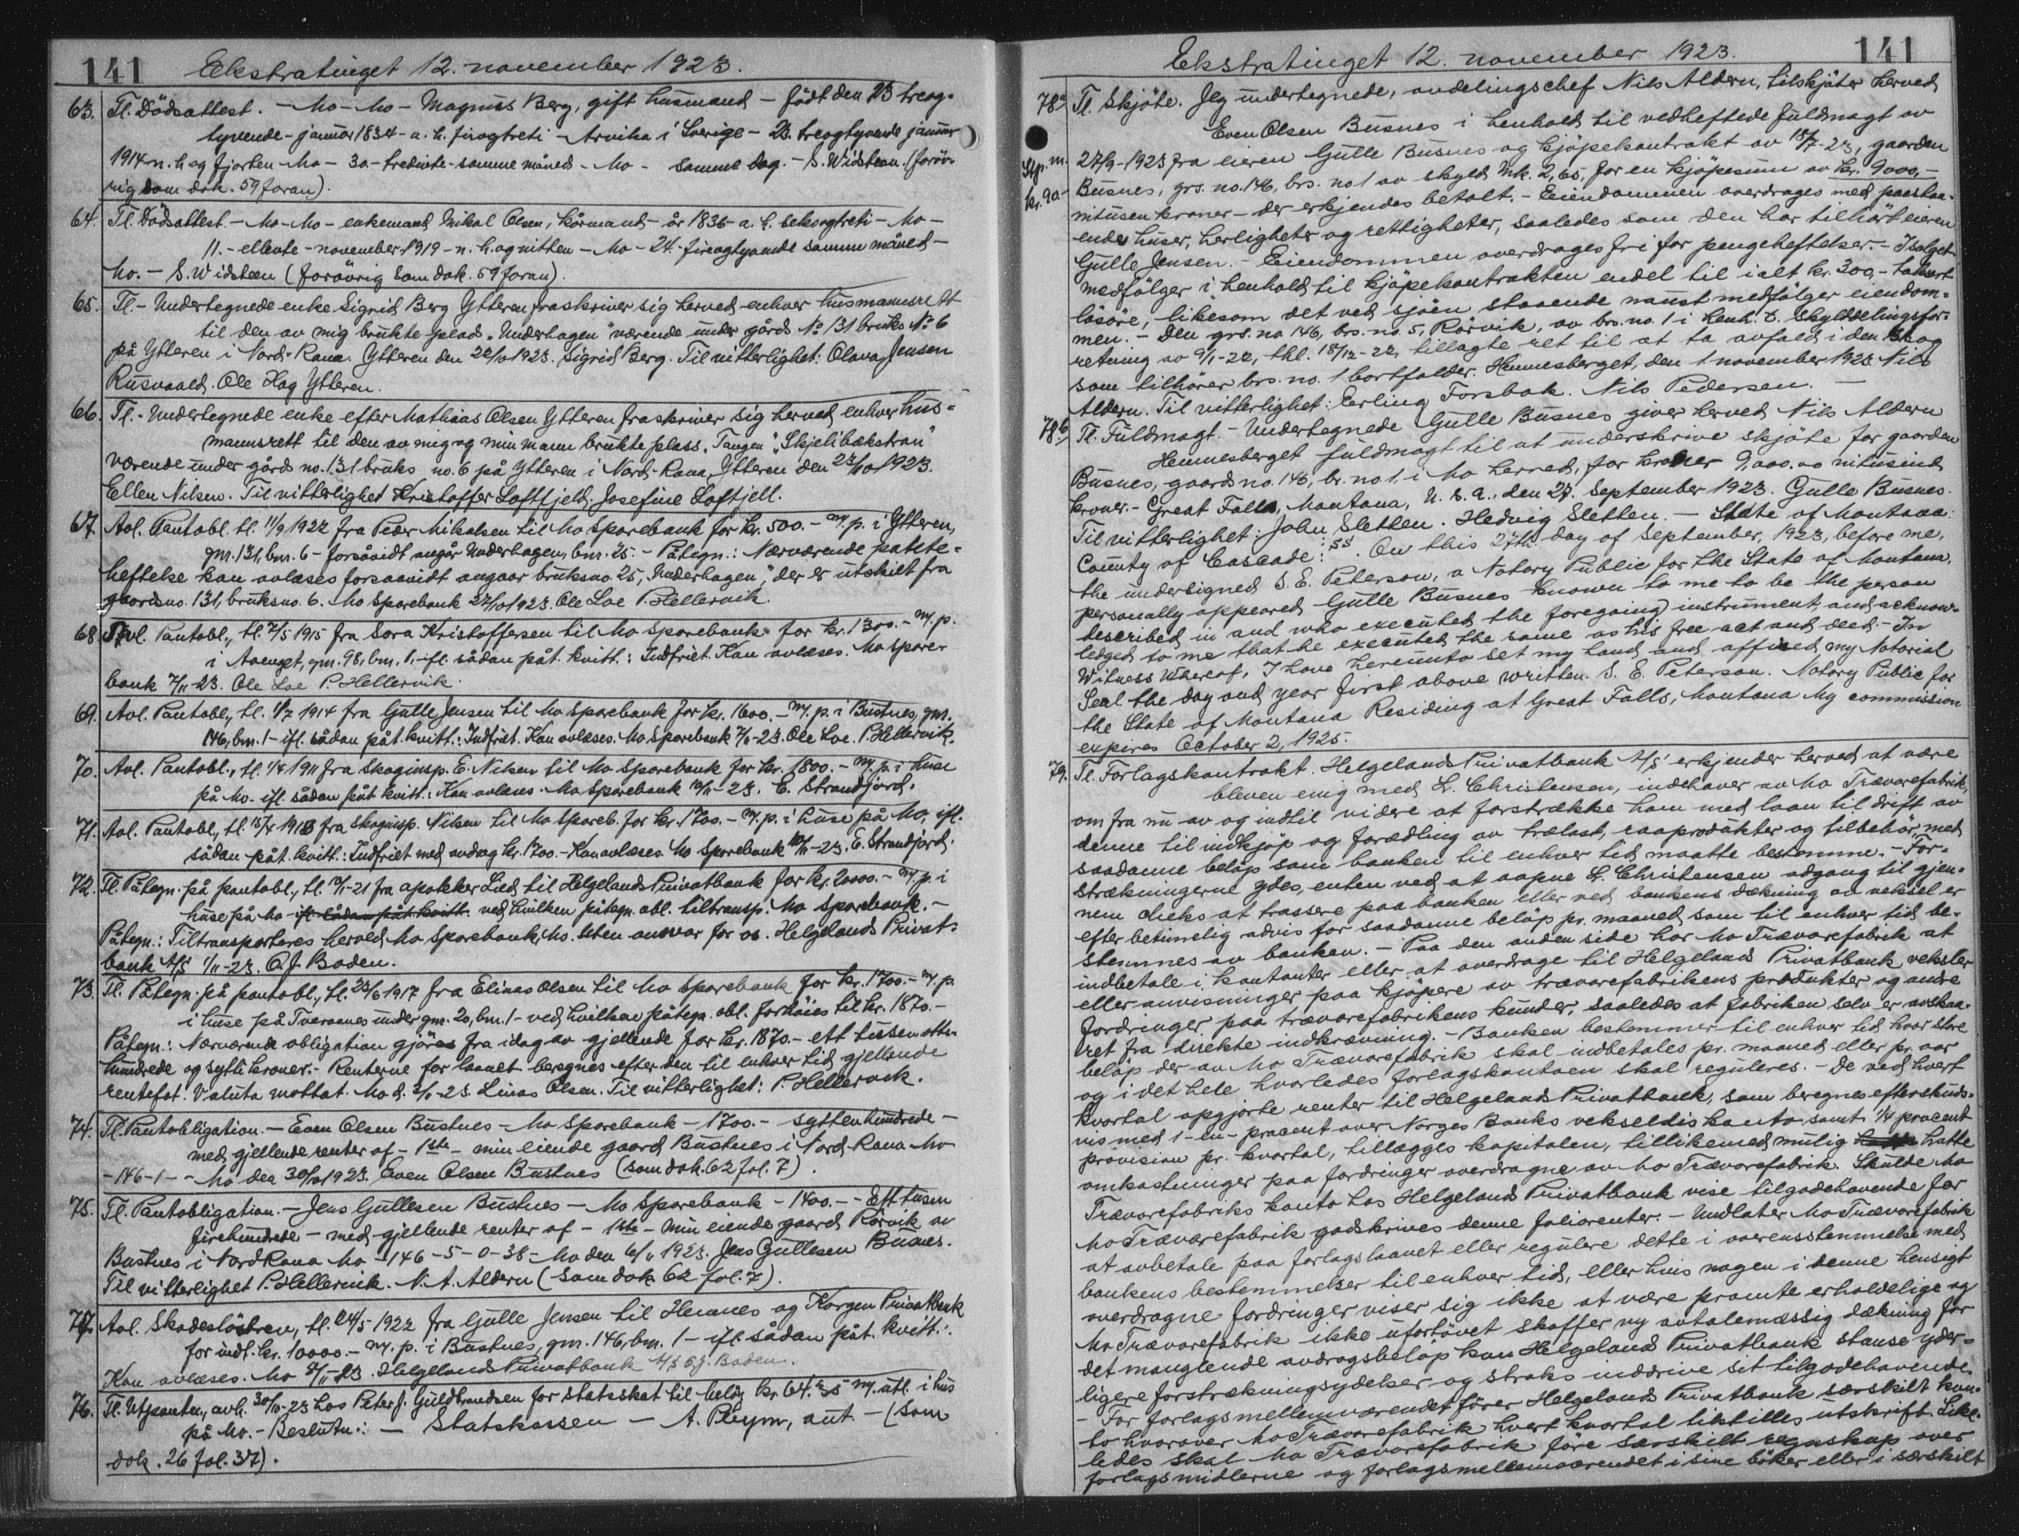 141 Ekstratinget 12. november 1923.
63. Tl. Dödsattest. - Mo - Mo - Magnus Berg, gift husmand - født den 23 treog-
tyvende - januar 1834 - a. h. firogtreti - Arvika i Sverige - 23. treogtyvende januar
1914 - n. h. og fjorten - Mo - 30 - tredivte - samme måned - Mo - samme dag. - S. Widsteen. (forøv-
rig som dok. 59 foran).
64. Tl. Dödsattest - Mo - Mo - enkemand Mikal Olsen, kårmand - år 1836 - a. h. seksogtreti - Mo -
11. - ellevte - november 1919 - n. h. og nitten - Mo - 24. firogtyvende samme måned -
Mo. - S. Widsteen (forövrig som dok. 59 foran).
65. Tl. - Undertegnede enke Sigrid Berg Ytteren fraskriver sig herved enhver husmannsrett
til den av mig brukte plads „Underhagen" værende under gårds No 131 bruks No 6
på Ytteren i Nord-Rana. Ytteren den 22/10 1923. Sigrid Berg. Til vitterlighet: Olava Jensen
Rusvaald. Ole Hag Ytteren.
66. Tl. - Undertegnede enke efter Mathias Olsen Ytteren fraskriver sig herved enhver hus-
mannsrett til den av meg og min mann brukte plass. Tangen „Skjelibækstran"
værende under gårds no. 131 bruks no. 6 på Ytteren i Nord-Rana, Ytteren den 23/10 1923.
Ellen Nilsen. Til vitterlighet Kristoffer Loftfjeld. Josefine Loftfjell.
67. Avl. Pantobl. tl. 11/9 1922 fra Peder Mikalsen til Mo Sparebank for kr. 500. - m. p. i Ytteren,
gnr. 131, bnr. 6 - forsåvidt angår Underhagen, bnr. 25. - Påtegn.: Nærværende pante-
heftelse kan avlæses forsaavidt angaar bruksno. 25, „Underhagen", der er utskilt fra
gaardsno. 131, bruksno. 6. Mo Sparebank 22/10 1923. Ole Loe P. Hellervik.
68. Avl. Pantobl., tl. 2/5 1915 fra Sara Kristoffersen til Mo Sparebank for kr. 1300. - m. p.
i Aaenget, gnr. 98, bnr. 1, - ifl. sådan påt. kvitt.: Indfriet. Kan avlæses. Mo spare-
bank 7/11-23. Ole Loe P. Hellervik.
69. Avl. Pantobl., tl. 1/7 1914 fra Gulle Jensen til Mo Sparebank for kr. 1600. - m. p. i Bustnes, gnr.
146, bnr. 1 - ifl. sådan påt. kvitt.: Indfriet. Kan avlæses. Mo Sparebank 7/11-23. Ole Loe. P. Hellervik.
70. Avl. Pantobl., tl. 1/4 1911 fra Skoginsp. E. Nilsen til Mo Sparebank for kr. 1800. - m. p. i huse
på Mo. ifl. sådan påt. kvitt.: Kan avlæses. Mo Sparebank 10/11-23. E. Strandjord.
71. Avl. Pantobl., tl. 15/4 1913 fra Skoginsp. Nilsen til Mo Spareb. for kr. 1700. - m. p. i huse på Mo, ifl.
sådan påt. kvitt.: Indfriet med avdrag kr. 1700. - Kan avlæses. Mo Sparebank 10/11-23. E. Strandjord.
72. Tl. Påtegn. på pantobl., tl. 11/1-21 fra apoteker Lied, til Helgelands Privatbank for kr. 20000. - m. p. i
huse på Mo - ifl. sådan påt. kvitt. ved hvilken påtegn. obl. tiltransp. Mo Sparebank. -
Påtegn.: Tiltransporteres herved Mo Sparebank, Mo. Uten ansvar for os. Helgelands Privat-
bank A/S 1/11-23. O. J. Boden.
73. Tl. Påtegn. på pantobl., tl. 23/6 1917 fra Elinas Olsen til Mo Sparebank for kr. 1700. - m. p
i huse på Tveraanes under gnr. 20, bnr. 1 - ved hvilken påtegn. obl. forhöies til kr. 1870. -
Påtegn.: Nærværende obligation gjöres fra idag av gjellende for kr. 1870. - ett tusen otte-
hundrede og sytti kroner. - Renterne for laanet beregnes efter den til enhver tid gjellende
rentefot. Valuta mottat. Mo d. 2/11-23 Linas Olsen. Til vitterlighet: P. Hellervik.
74. Tl. Pantobligation. - Even Olsen Bustnes - Mo Sparebank - 1700. - syttenhundrede -
med gjellende renter af - 1ste - min eiende gaard Bustnes i Nord-Rana Mo
- 146 - 1 - - Mo den 30/10 1923. Even Olsen Bustnes (som dok. 62 fol. 7).
75. Tl. Pantobligation. - Jens Gullesen Bustnes - Mo Sparebank - 1400. - - Ett tusen
firehundrede - med gjellende renter af - 1ste - min eiende gaard Rørvik av
Bustnes i Nord Rana Mo - 146 - 5 - 0 - 38 - Mo den 6/11 1923. Jens Gullesen Busnes.
Til vitterlighet P. Hellervik. N. A. Aldern (som dok. 62 fol. 7).
77. Avl. Skadeslösbrev, tl. 24/5 1922 fra Gulle Jensen til Hemnes og Korgen Privatbank
for indt. kr. 10000. - m. p. i Bustnes, gnr. 146, bnr. 1 - ifl. sådan påt. kvitt.:
Kan avlæses. Mo 2/11-23. Helgelands Privatbank A/S O. J. Boden.
76. Tl. Utpantn., avh. 30/10-23 hos Peter J. Guldbrandsen for statsskat til beløp kr. 64.25 m. utl. i hus
på Mo. - Beslutn.: - Statskassen - A. Pleym, aut. - (som
dok. 26 fol. 37).
Ekstratinget 12. november 1923. 141
78a Tl. Skjöte. Jeg undertegnede, avdelingschef Nils Aldern, tilskjöter herved
Even Olsen Busnes i henhold til vedheftede fuldmagt av
Stp. m. 27/9-1923 fra eieren Gulle Busnes og kjöpekontrakt av 18/7-23, gaarden
kr. 90 Busnes, grs. no. 146, brs. no. 1 av skyld Mk. 2,65, for en kjöpesum av kr. 9000, -
nitusen kroner - der erkjendes betalt. - Eiendommen overdrages med paastaa-
ende huser, herligheter og rettigheter, saaledes som den har tilhört eieren
Gulle Jensen. - Eiendommen overdrages fri for pengeheftelser. - I salget
medfölger i henhold til kjöpekontrakten endel til ialt kr. 300, - taksert
lösöre, likesom det ved sjöen staaende naust medfölger eiendom-
men. - Den grs. no 146, brs. no. 5, Rörvik, av brs. no. 1 i henh. t. skylddelingsfor-
retning av 9/11-22, thl. 18/12-22, tillagte ret til at ta avfald i den skog
som tilhører brs. no. 1 bortfalder. Hemnesberget, den 1 november 1923 Nils
Aldern. Til vitterlighet: Erling Forsbak. Nils Pedersen. -
78b Tl. Fuldmagt. - Undertegnede Gulle Busnes giver herved Nils Aldern
Hemnesberget fuldmagt til at underskrive skjöte for gaarden
Busnes, gaards no. 146, br. no. 1. i Mo herred, for kroner 9,000.00 nitusind
kroner. - Great Falls, Montana, U. S. A., den 27. September 1923. Gulle Busnes.
Til vitterlighet: John Sletten. Hedvig Sletten. - State of Montana:
County of Cascade: ss. On this 27th day of September, 1923, before me,
the undersigned S. E. Peterson, a Notary Public for the State of Montana,
personally appeared Gulle Busnes known to me to be the person
described in and who executed the foregoing instrument, and acknow-
ledged to me that he executed the same as his free act and deed. - In
Witness Whereof, I have hereunto set my hand and affixed my Notarial
Seal the day and year first above written. S. E. Peterson. Notary Public for
the State of Montana Residing at Great Falls, Montana My commission
expires October 2, 1925.
79. Tl. Forlagskontrakt. Helgelands Privatbank A/S erkjender herved at være
bleven enig med L. Christensen, indehaver av Mo Trævarefabrik,
om fra nu av og indtil videre at forstrække ham med laan til drift av
denne til indkjöp og forædling av trælast, raaprodukter og tilbehör, med
saadanne belöp som banken til enhver tid maatte bestemme. - For-
strækningerne ydes, enten ved at aapne L. Christensen adgang til gjen-
nem cheks at trassere paa banken eller ved bankens dækning av veksel er
efter betimelig advis for saadanne belöp pr. maaned som til enhver tid be-
stemmes av banken. - Paa den anden side har Mo Trævarefabrik at
indbetale i kontanter eller at overdrage til Helgelands Privatbank veksler
eller anvisninger paa kjöpere av trævarefabrikens produkter og andre
fordringer paa trævarefabrikens kunder, saaledes at fabriken selv er avskaa-
ret fra direkte indkrævning. - Banken bestemmer til enhver tid hvor store
belöp der av Mo Trævarefabrik skal indbetales pr. maaned eller pr. aar
og i det hele hvorledes forlagskontoen skal reguleres. - De ved hvert
kvartal opgjorte renter til Helgelands Privatbank, som beregnes efterskuds-
vis med 1 - en - procent over Norges Banks vekseldiskonto samt 1/4 procent
provision pr. kvartal, tillægges kapitalen, tillikemed mulig hatte
omkostninger paa fordringer overdragne av Mo Trævarefabrik. Skulde Mo
Trævarefabriks konto hos Helgelands Privatbank vise tilgodehavende for
Mo Trævarefabrik godskrives denne foliorenter. - Undlater Mo Trævarefabrik
at avbetale paa forlagslaanet eller regulere dette i overensstemmelse med
bankens bestemmelser til enhver tid, eller hvis nogen i denne hensigt
overdragne fordringer viser sig ikke at være promte erholdelige og
Mo Trævarefabrik ikke ufortövet skaffer ny avtalemæssig dækning for
det manglende avdragsbelöp kan Helgelands Privatbank stanse yder-
ligere forstrækningsydelser og straks inddrive sit tilgodehavende.
- For forlagsmellemværendet förer Helgelands Privatbank særskilt kon-
to hvorover Mo Trævarefabrik hvert kvartal tilstilles utskrift. Like-
ledes skal Mo Trævarefabrik före særskilt regnskap over
forlagsmidlerne og forlagsmellemværendet i sine böker eller i særskilt